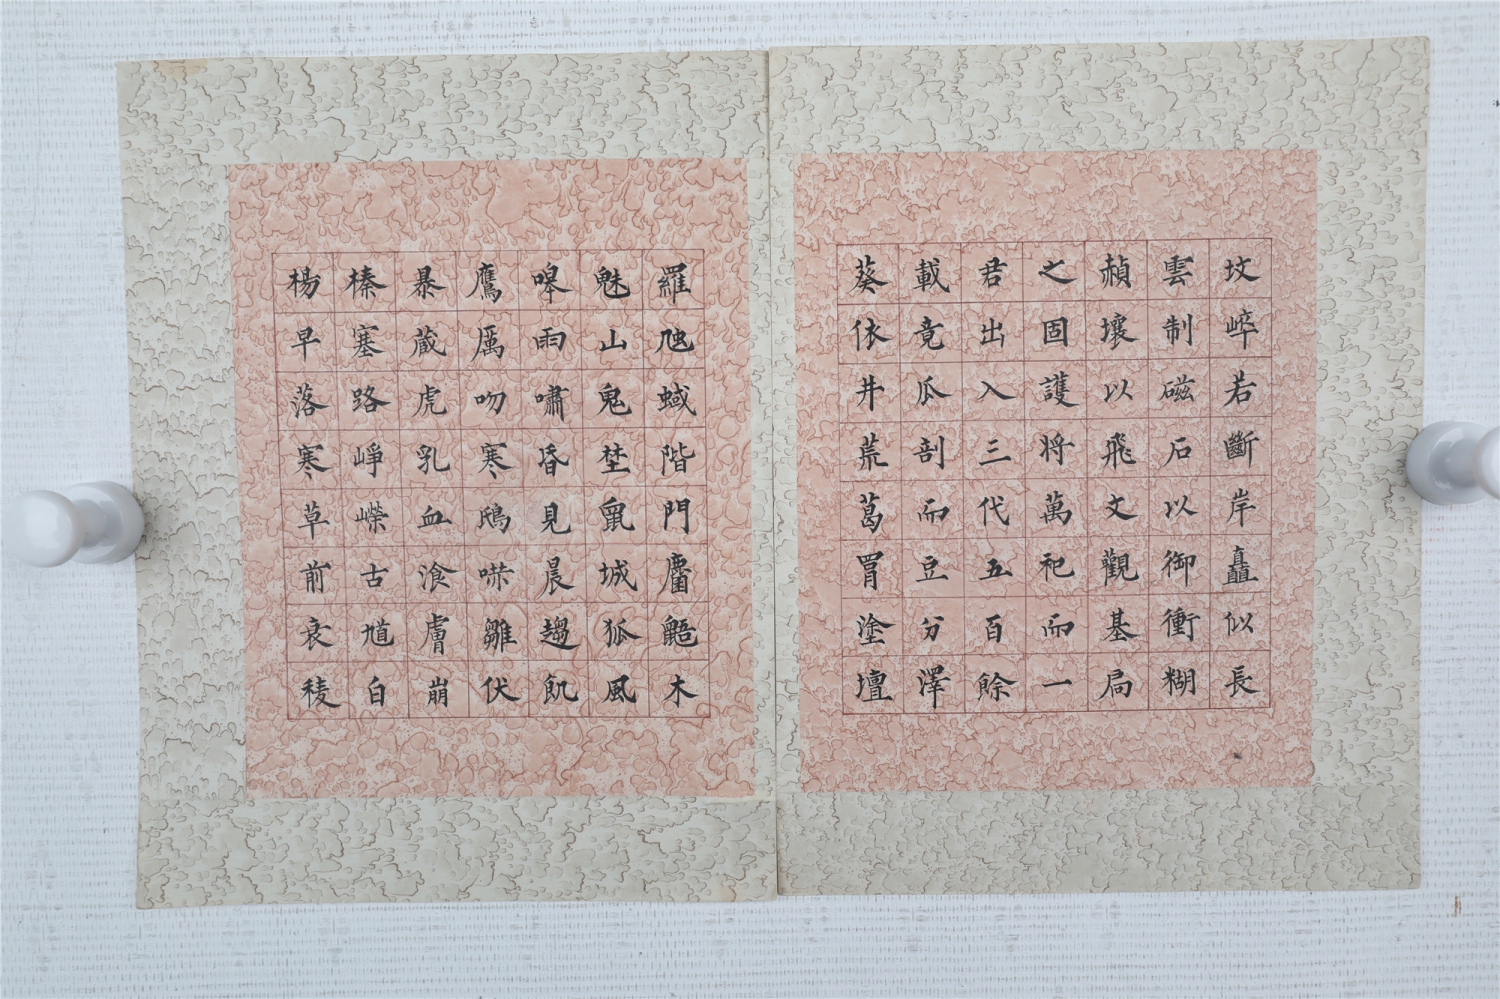 坟崪若斷岸矗似長
雲制磁石以御衝糊
赬壤以飛文觀基局
之固護将萬祀而一
君出入三代五百餘
載竟瓜剖而豆分澤
葵依井荒葛罥塗壇
羅虺蜮階門麏鼯木
魅山鬼埜鼠城狐風
嘷雨嘯昏見晨趨飢
鷹厲吻寒鴟嚇雛伏
暴藏虎乳血飡膚崩
榛塞路崢嶸古馗白
楊早落寒草前衰稜